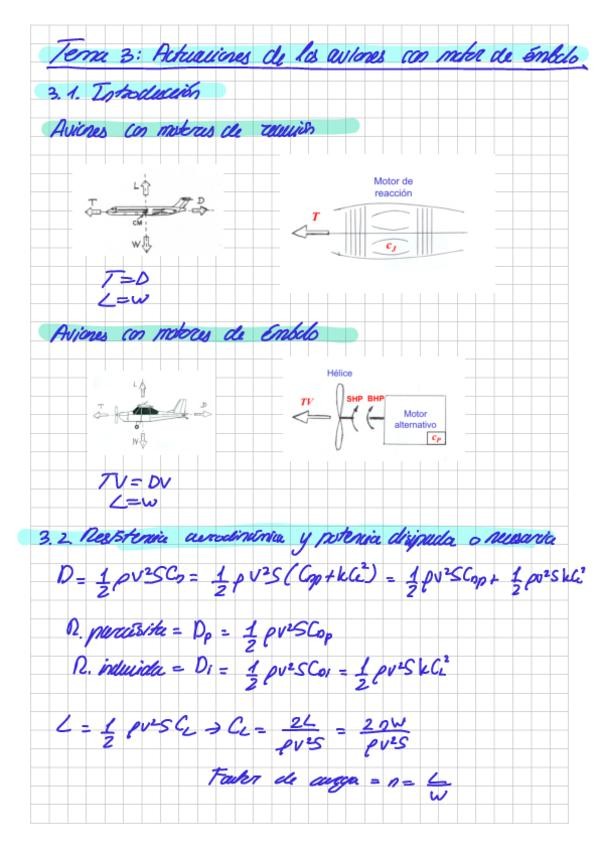 Tema 3: Actuaciones de los aviones con motor de émbolo
3.1. Introducción
Aviones con motores de reacción
L
T D
CM
W
Motor de
reacción
T
c_J
T=D
L=W
Aviones con motores de émbolo
L
T D
W
Hélice
TV SHP BHP
Motor
alternativo
c_P
TV = DV
L=W
3.2 Resistencia aerodinámica y potencia disipada o necesaria
D = 1/2 ρV²SC_D = 1/2 ρV²S(C_Dp+kC_L²) = 1/2 ρV²SC_Dp + 1/2 ρV²SkC_L²
R. parásita = D_p = 1/2 ρV²SC_Dp
R. inducida = D_i = 1/2 ρV²SC_Di = 1/2 ρV²SkC_L²
L = 1/2 ρV²SC_L → C_L = 2L/ρV²S = 2nW/ρV²S
Factor de carga = n = L/W